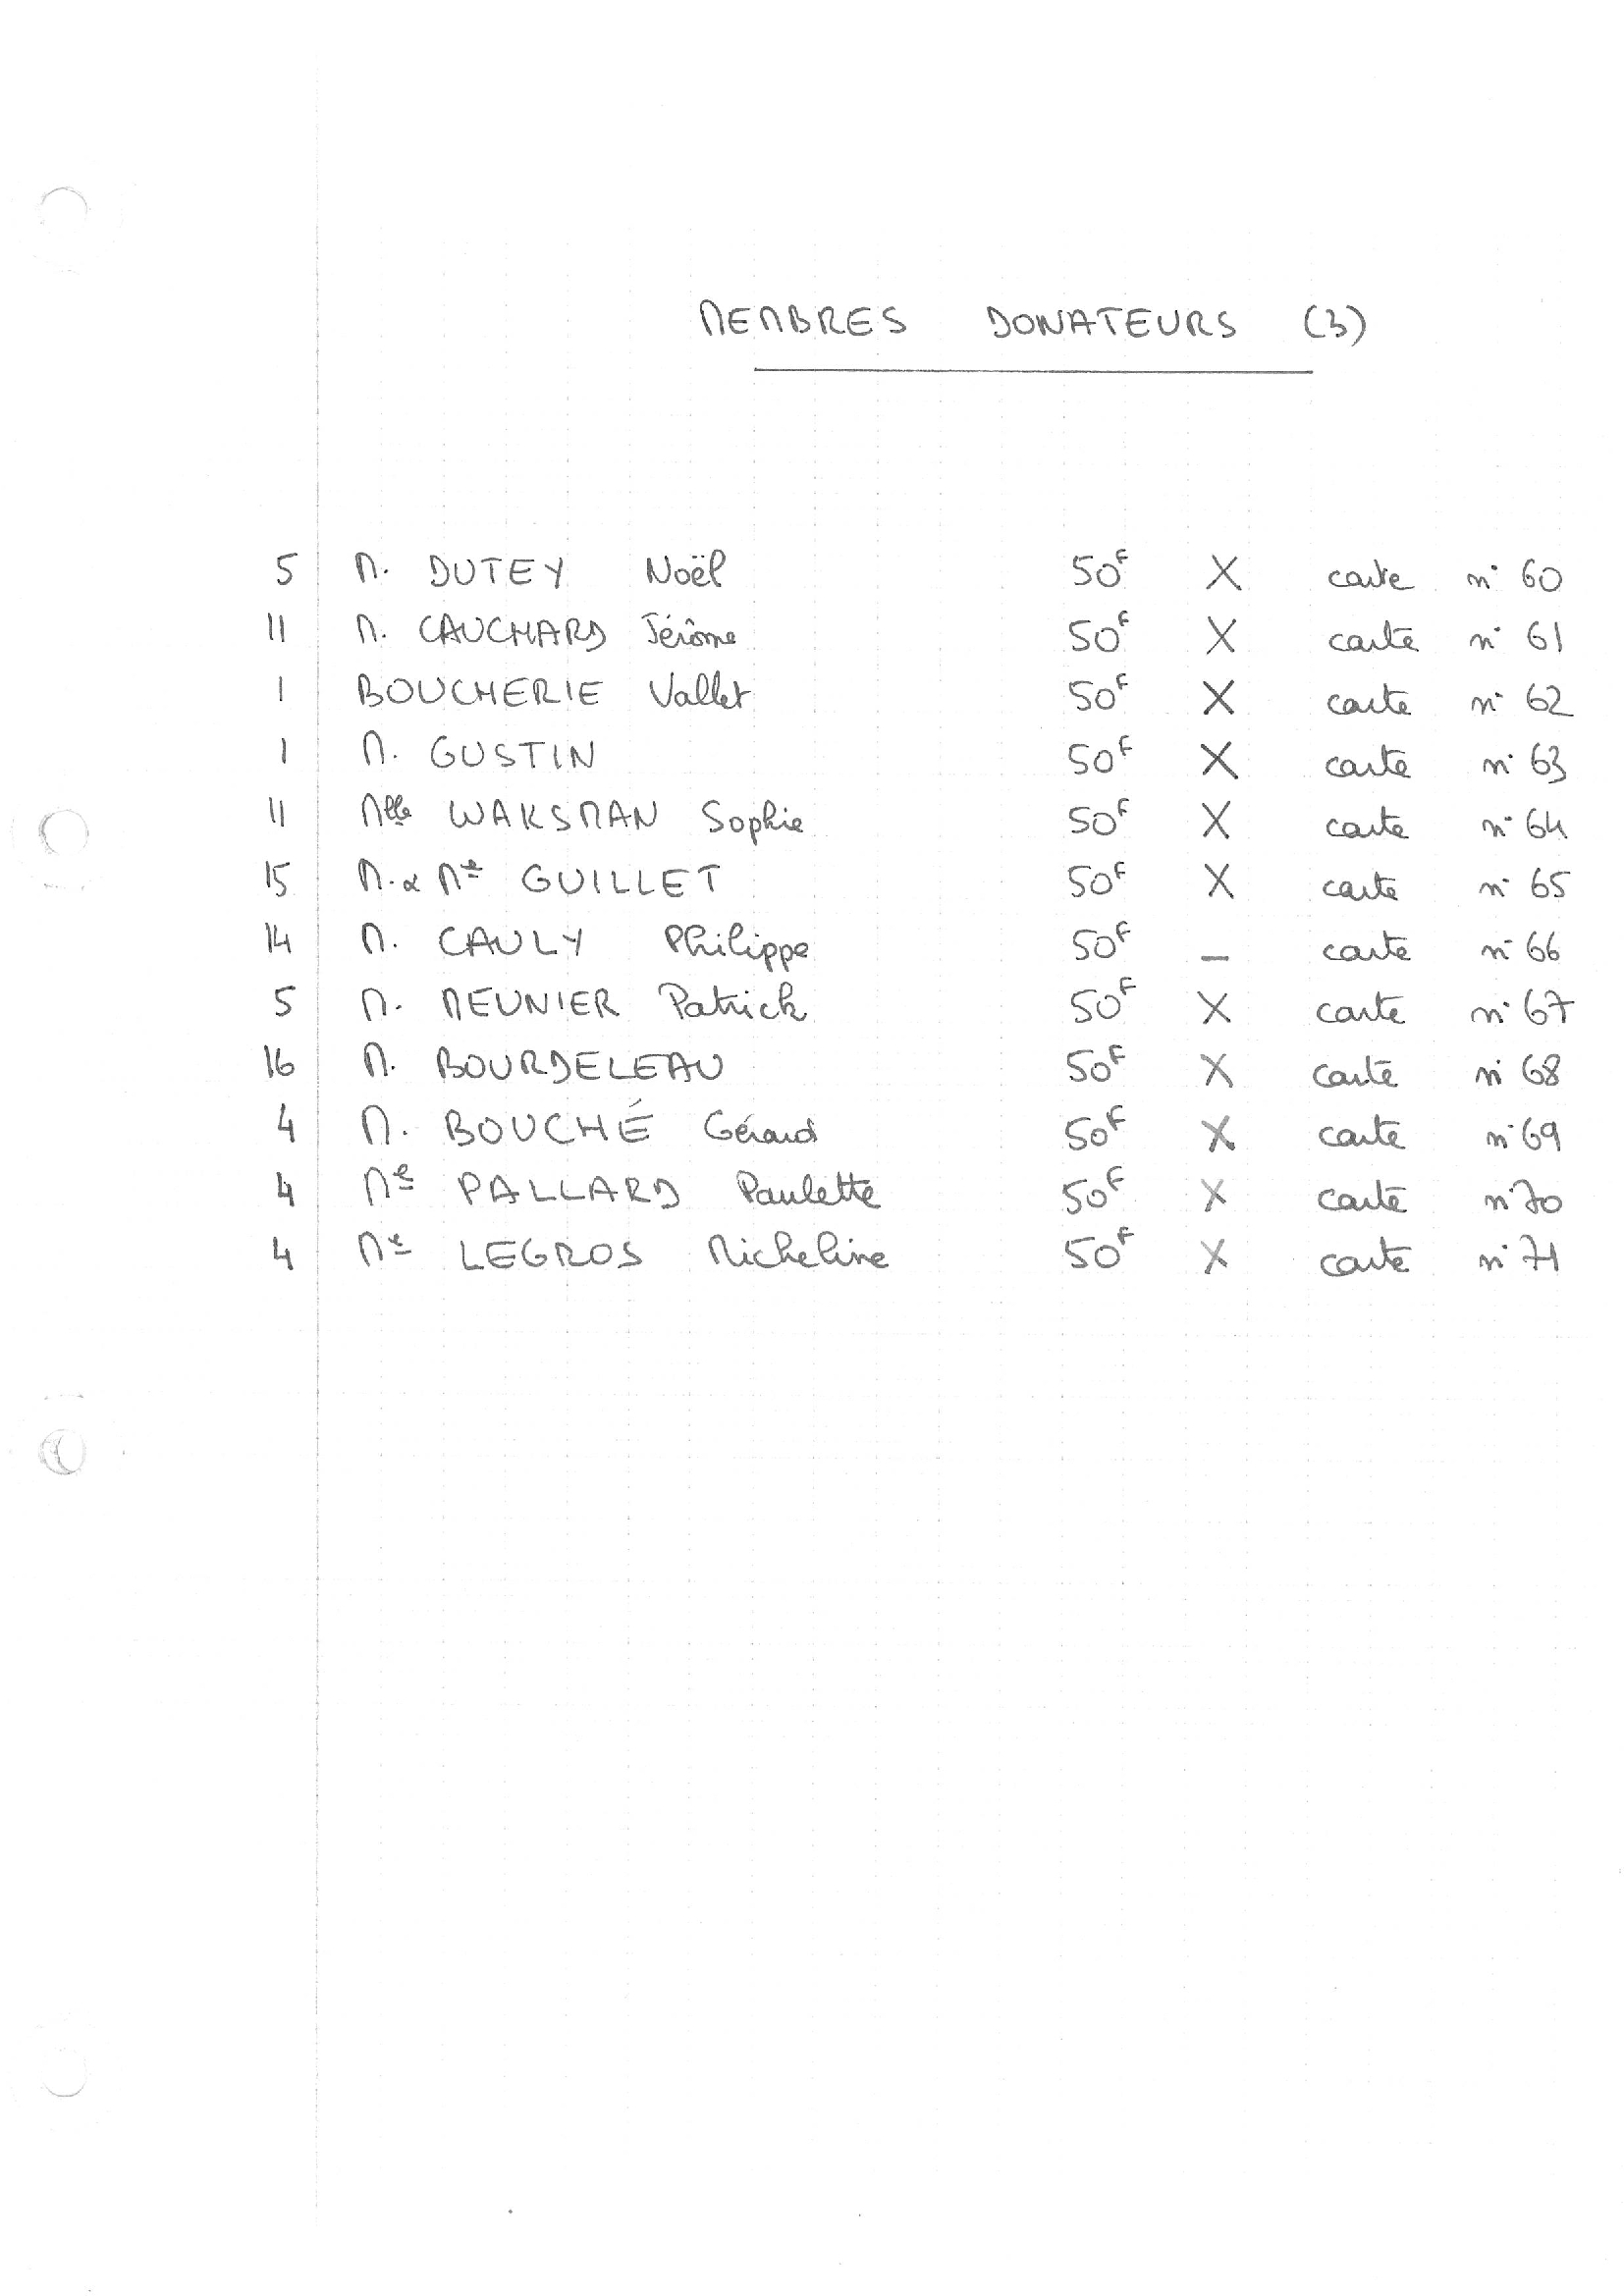 MEMBRES DONATEURS (3)
5 M. DUTEY Noël 50F X carte n° 60
11 M. CAUCHARD Jérôme 50F X carte n° 61
1 BOUCHERIE Vallet 50F X carte n° 62
1 M. GUSTIN 50F X carte n° 63
11 Mlle WAKSMAN Sophie 50F X carte n° 64
15 M. & Me GUILLET 50F X carte n° 65
14 M. CAULY Philippe 50F – carte n° 66
5 M. MEUNIER Patrick 50F X carte n° 67
16 M. BOURDELEAU 50F X carte n° 68
4 M. BOUCHÉ Gérard 50F X carte n° 69
4 Me PALLARD Paulette 50F X carte n° 70
4 Me LEGROS Micheline 50F X carte n° 71